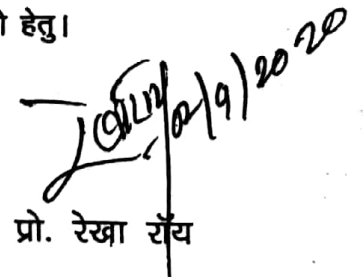 हेतु।
2/9/2020
प्रो. रेखा रॉय